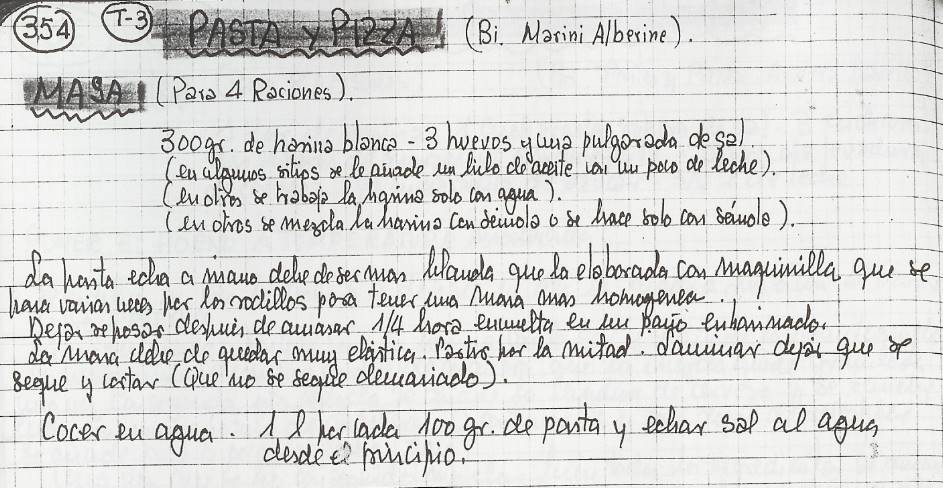 354 T-3 PASTA Y PIZZA! (Bi. Marini Alberine).
MASA! (Para 4 Raciones).
300gr. de harina blanca - 3 huevos y una pulgarada de sal
(en algunos sitios se le añade un hilo de aceite con un poco de leche).
(en otros se trabaja la harina solo con agua).
(en otros se mezcla la harina con sémola o se hace solo con sémola).
La pasta echa a mano debe de ser mas blanda que la elaborada con maquinilla que se
pasa varias veces por los rodillos para tener una masa mas homogenea.
Dejar reposar después de amasar 1/4 hora envuelta en un paño enharinado.
La masa debe de quedar muy elástica. Partir por la mitad. Laminar dejar que se
seque y cortar (Que no se seque demasiado).
Cocer en agua. 1 l por cada 100 gr. de pasta y echar sal al agua
desde el principio.